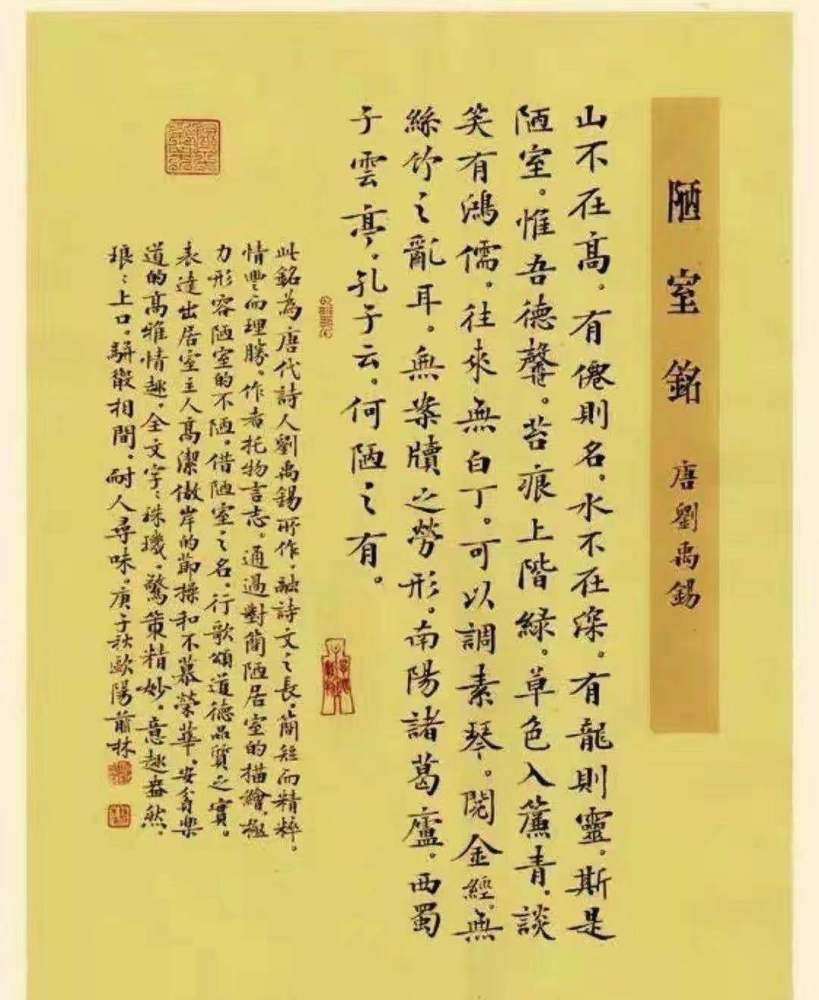 陋室銘 唐劉禹錫
山不在高。有僊則名。水不在深。有龍則靈。斯是
陋室。惟吾德馨。苔痕上階綠。草色入簾青。談
笑有鴻儒。往來無白丁。可以調素琴。閱金經。無
絲竹之亂耳。無案牘之勞形。南陽諸葛廬。西蜀
子雲亭。孔子云。何陋之有。
此銘為唐代詩人劉禹錫所作。融詩文之長。簡短而精粹。
情豐而理勝。作者托物言志。通過對簡陋居室的描繪。極
力形容陋室的不陋。借陋室之名。行歌頌道德品質之實。
表達出居室主人高潔傲岸的節操和不慕榮華。安貧樂
道的高雅情趣。全文字字珠璣。驚策精妙。意趣盎然。
琅琅上口。駢散相間。耐人尋味。庚子秋歐陽蕭林